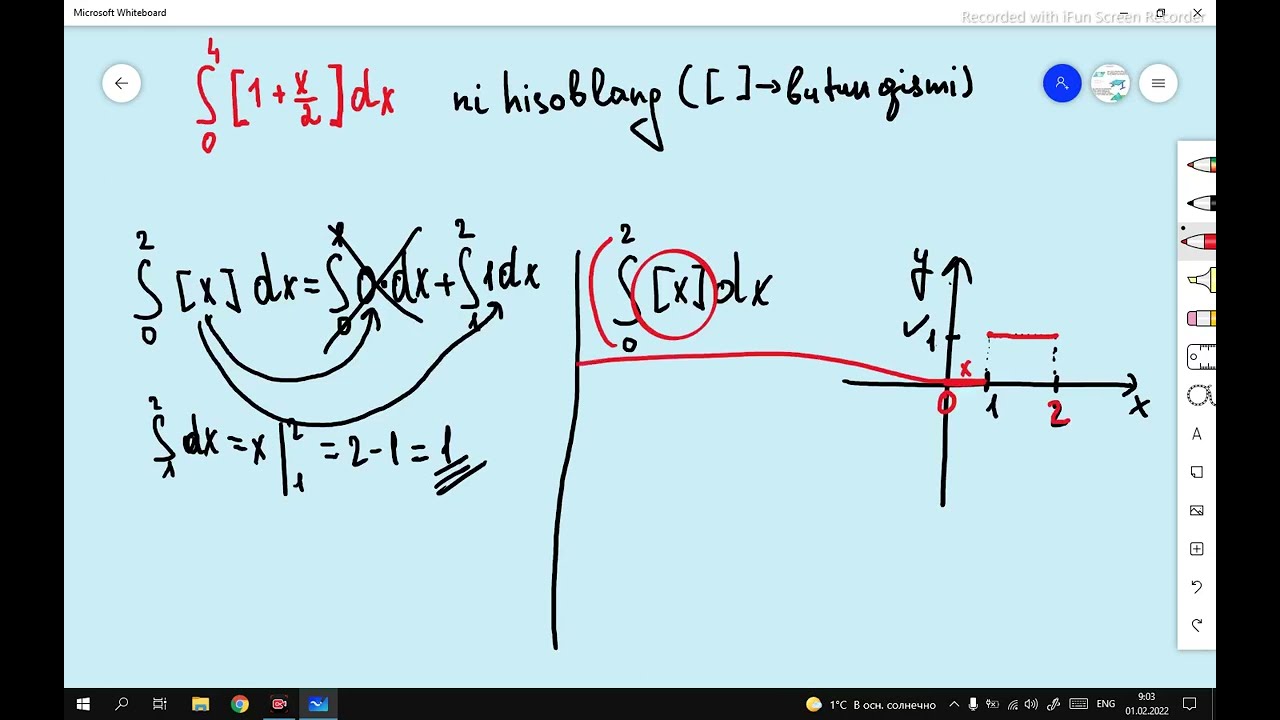 Microsoft Whiteboard
Recorded with iFun Screen Recorder
∫₀⁴ [1 + x/2] dx ni hisoblang ([ ] → butun qismi)
∫₀² [x] dx = ∫₀¹ 0·dx + ∫₁² 1dx
∫₁² dx = x |₁² = 2 - 1 = 1
∫₀² [x] dx
y
1
x
0 1 2 x
A
1°C В осн. солнечно
ENG
9:03
01.02.2022